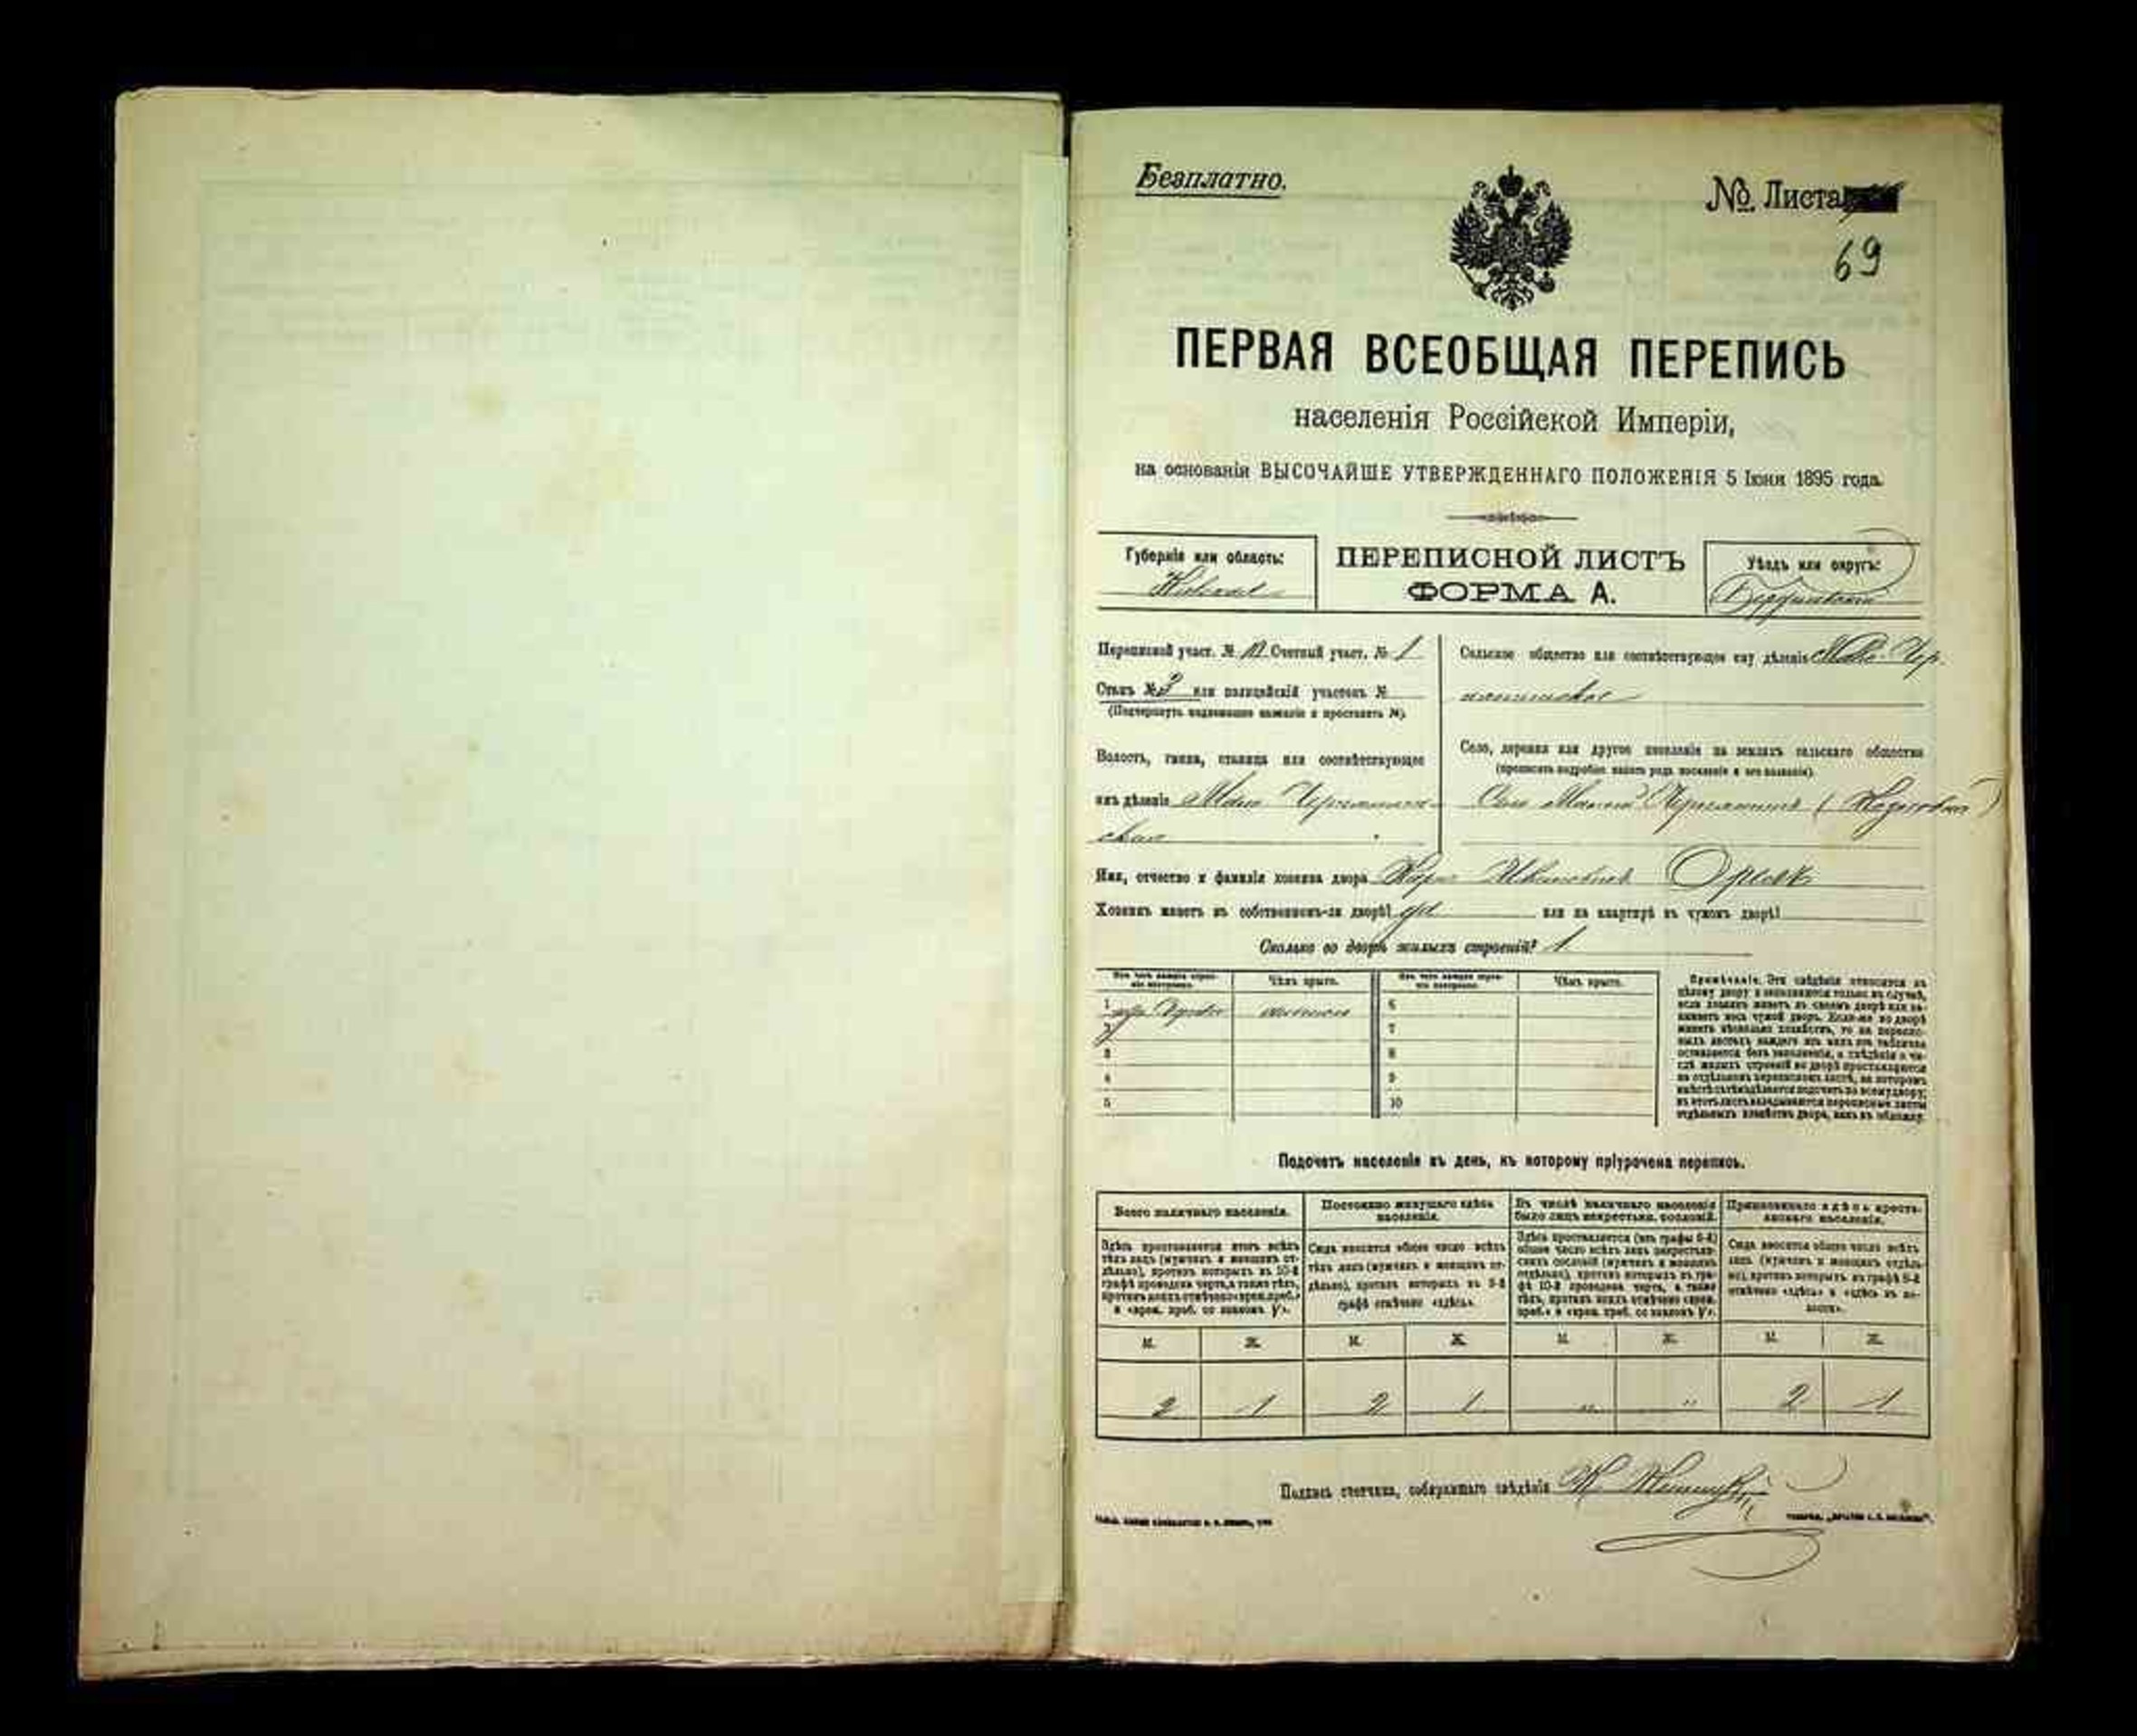 Безплатно.
№ Листа
69
ПЕРВАЯ ВСЕОБЩАЯ ПЕРЕПИСЬ
населенія Россійской Имперіи,
на основаніи ВЫСОЧАЙШЕ УТВЕРЖДЕННАГО ПОЛОЖЕНІЯ 5 Іюня 1895 года.
Губернія или область:
Кіевская
ПЕРЕПИСНОЙ ЛИСТЪ
ФОРМА А.
Уѣздъ или округъ:
Бердичевскій
Переписной участ. № Счетный участ. № 1
Сельское общество или соотвѣтствующее ему дѣленіе
Станъ № 3 или полицейскій участокъ №
(Подчеркнуть надлежащее названіе и проставить №).
Волость, гмина, станица или соотвѣтствующее
имъ дѣленіе Мало
ская
Село, деревня или другое поселеніе на земляхъ сельскаго общества
(прописать подробно какого рода поселеніе и его названіе).
Село
Имя, отчество и фамилія хозяина двора
Хозяинъ живетъ въ собственномъ-ли дворѣ? да или на квартирѣ въ чужомъ дворѣ?
Сколько во дворѣ жилыхъ строеній? 1
Изъ чего каждое строеніе построено.
Чѣмъ крыто.
Изъ чего каждое строеніе построено.
Чѣмъ крыто.
1
6
2
7
3
8
4
9
5
10
Примѣчаніе. Эти свѣдѣнія относятся къ
цѣлому двору и заполняются только въ случаѣ,
если хозяинъ живетъ въ своемъ дворѣ или за-
нимаетъ весь чужой дворъ. Если-же во дворѣ
живетъ нѣсколько хозяйствъ, то на перепис-
ныхъ листахъ каждаго изъ нихъ эта табличка
оставляется безъ заполненія, а свѣдѣнія о чи-
слѣ жилыхъ строеній во дворѣ проставляются
на отдѣльномъ переписномъ листѣ, на которомъ
вмѣстѣ съ тѣмъ дѣлается подсчетъ по всему двору;
въ этотъ листъ вкладываются переписные листы
отдѣльныхъ хозяйствъ двора, какъ въ обложку.
Подсчетъ населенія въ день, къ которому пріурочена перепись.
Всего наличнаго населенія.
Постоянно живущаго здѣсь населенія.
Въ числѣ наличнаго населенія было лицъ некрестьян. сословій.
Приписаннаго здѣсь крестьянскаго населенія.
Здѣсь проставляется итогъ всѣхъ
тѣхъ лицъ (мужчинъ и женщинъ от-
дѣльно), противъ которыхъ въ 10-й
графѣ проведена черта, а также тѣхъ,
противъ коихъ отмѣчено «врем. преб.»
и «врем. преб. со знакомъ V».
Сюда вносится общее число всѣхъ
тѣхъ лицъ (мужчинъ и женщинъ от-
дѣльно), противъ которыхъ въ 9-й
графѣ отмѣчено «здѣсь».
Здѣсь проставляется (изъ графы 6-й)
общее число всѣхъ лицъ некрестьян-
скихъ сословій (мужчинъ и женщинъ
отдѣльно), противъ которыхъ въ гра-
фѣ 10-й проведена черта, а также
тѣхъ, противъ коихъ отмѣчено «врем.
преб.» и «врем. преб. со знакомъ V».
Сюда вносится общее число всѣхъ
лицъ (мужчинъ и женщинъ отдѣль-
но), противъ которыхъ въ графѣ 8-й
отмѣчено «здѣсь» и «здѣсь въ во-
лости».
М. Ж. М. Ж. М. Ж. М. Ж.
2 1 2 1 „ „ 2 1
Подпись счетчика, собиравшаго свѣдѣнія